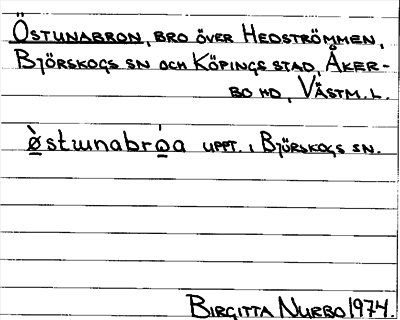 Östunabron, bro över Hedströmmen,
Björskogs sn och Köpings stad, Åker-
bo hd, Västm. l.
ø̲̀stɯnabrò̲a uppt. i Björskogs sn.
Birgitta Nurbo 1974.